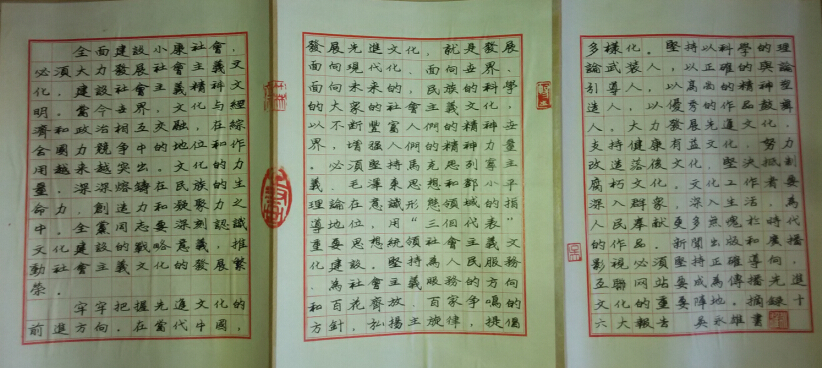 全面建設小康社會,
必須大力發展社會主義文
化,建設社會主義精神文
明。當今世界,文化與經
濟和政治相互交融,在綜
合國力競爭中的地位和作
用越來越突出。文化的力
量,深深熔鑄在民族的生
命力,創造力和凝聚力之
中。全黨同志要深刻認識
文化建設的戰略意義,推
動社會主義文化的發展繁
榮。
牢牢把握先進文化的
前進方向。在當代中國,
發展先進文化,就是發展
面向現代化、面向世界、
面向未來的,民族的科學
的大衆的社會主義文化,
以不斷豐富人們的精神世
界,增强人們的精神力量
。必須堅持馬克思列寧主
義、毛澤東思想和鄧小平
理論在意識形態領域的指
導地位,用“三個代表”
重要思想統領社會主義文
化建設。堅持爲人民服務
、爲社會主義服務的方向
和百花齊放、百家爭鳴的
方針,弘揚主旋律,提倡
多樣化。堅持以科學的理
論武装人,以正確的輿論
引導人,以高尚的精神塑
造人,以優秀的作品鼓舞
人。大力發展先進文化,
支持健康有益文化,努力
改造落後文化,堅決抵制
腐朽文化。文化工作者要
深入群衆,深入生活,爲
人民奉獻更多無愧於時代
的作品。新聞出版和廣播
影視必須堅持正確導向,
互聯网站要成爲傳播先進
文化的重要陣地。摘録十
六大報告 吳永雄書